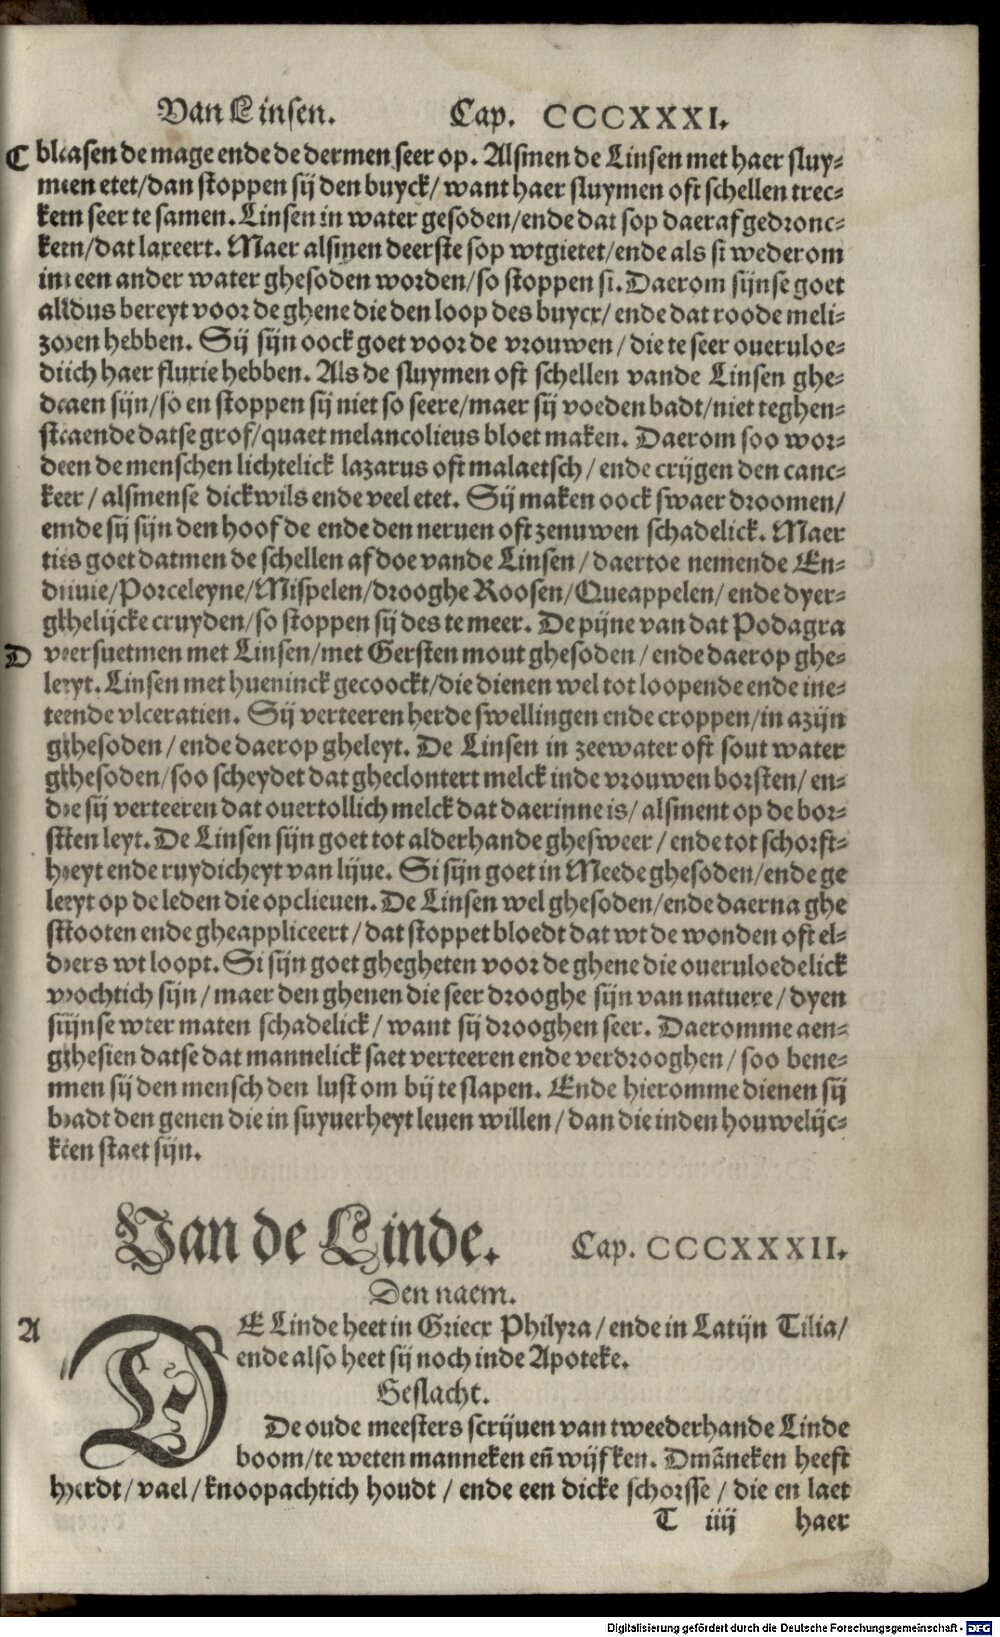 Van Linsen. Cap. CCCXXXI.
C blasen de mage ende de dermen seer op. Alsmen de Linsen met haer sluy-
men etet/dan stoppen sij den buyck/ want haer sluymen oft schellen trec-
ken seer te samen. Linsen in water gesoden/ende dat sop daeraf gedronc-
ken/dat laxeert. Maer alsmen deerste sop wtgietet/ende als si wederom
in een ander water ghesoden worden/so stoppen si. Daerom sijnse goet
aldus bereyt voor de ghene die den loop des buycx/ ende dat roode meli-
zoen hebben. Sij sijn oock goet voor de vrouwen/ die te seer oueruloe-
dich haer fluxie hebben. Als de sluymen oft schellen vande Linsen ghe-
daen sijn/so en stoppen sij niet so seere/maer sij voeden badt/niet teghen-
staende datse grof/quaet melancolieus bloet maken. Daerom soo wor-
den de menschen lichtelick lazarus oft malaetsch/ ende crijgen den canc-
ker/ alsmense dickwils ende veel etet. Sij maken oock swaer droomen/
ende sij sijn den hoofde ende den neruen oft zenuwen schadelick. Maer
tis goet datmen de schellen af doe vande Linsen/ daertoe nemende En-
diuie/Porceleyne/Mispelen/drooghe Roosen/Queappelen/ ende dyer-
ghelijcke cruyden/so stoppen sij des te meer. De pijne van dat Podagra
D versuetmen met Linsen/met Gersten mout ghesoden/ ende daer op ghe-
leyt. Linsen met hueninck gecoockt/die dienen wel tot loopende ende ine-
tende vlceratien. Sij verteeren herde swellingen ende croppen/in azijn
ghesoden/ ende daer op gheleyt. De Linsen in zeewater oft sout water
ghesoden/soo scheydet dat gheclontert melck inde vrouwen borsten/ en-
de sij verteeren dat ouertollich melck dat daerinne is/ alsment op de bor-
sten leyt. De Linsen sijn goet tot alderhande ghesweer/ ende tot schorft-
heyt ende ruydicheyt van lijue. Si sijn goet in Meede ghesoden/ende ge
leyt op de leden die opclieuen. De Linsen wel ghesoden/ende daerna ghe
stooten ende gheappliceert/ dat stoppet bloedt dat wt de wonden oft el-
ders wt loopt. Si sijn goet ghegheten voor de ghene die oueruloedelick
vochtich sijn/ maer den ghenen die seer drooghe sijn van natuere/ dyen
sijnse wter maten schadelick/ want sij drooghen seer. Daeromme aen-
ghesien datse dat mannelick saet verteeren ende verdrooghen/ soo bene-
men sij den mensch den lust om bij te slapen. Ende hieromme dienen sij
badt den genen die in suyuerheyt leuen willen/ dan die inden houwelijc-
ken staet sijn.
Van de Linde. Cap. CCCXXXII.
Den naem.
A DE Linde heet in Griecx Philyra/ ende in Latijn Tilia/
ende also heet sij noch inde Apoteke.
Geslacht.
De oude meesters scrijuen van tweederhande Linde
boom/te weten manneken eñ wijfken. Dmãneken heeft
herdt/ vael/ knoopachtich houdt/ ende een dicke schorsse/ die en laet
T iiij haer
Digitalisierung gefördert durch die Deutsche Forschungsgemeinschaft - DFG